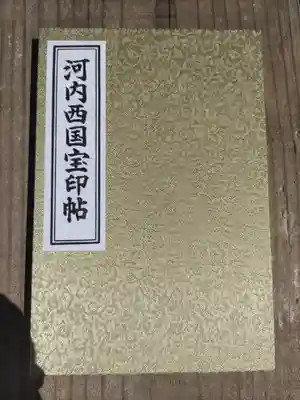 河内西国宝印帖